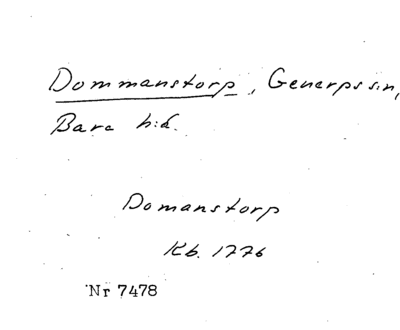 Dommanstorp, Generps sn,
Bara hd.
Domanstorp
Kb. 1776
Nr 7478